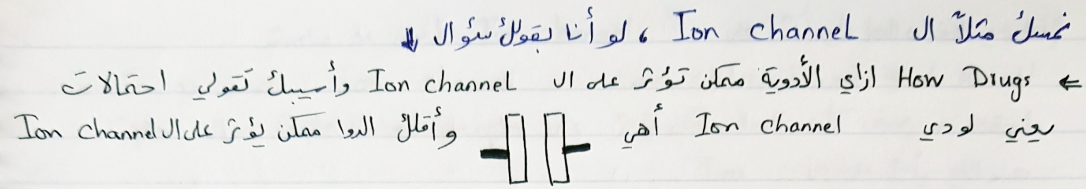 نمسك مثلاً ال Ion channel ، لو أنا بقولك سؤال ↓
← How Drugs ازاي الأدوية ممكن تؤثر على ال Ion channel وأسيبك تقولي احتمالات
يعني لو دي Ion channel أهي وأقلك الدوا ممكن يؤثر على ال Ion Channel